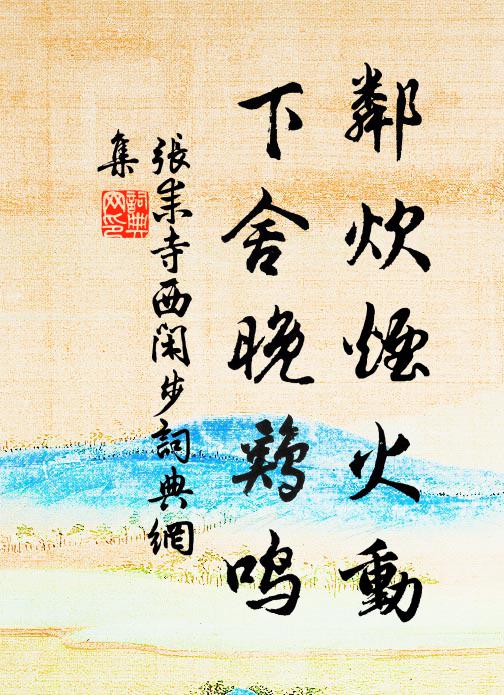 鄰炊煙火動
下舍晚鶏鸣
張耒寺西閑步詞典網
集
詞典
网印